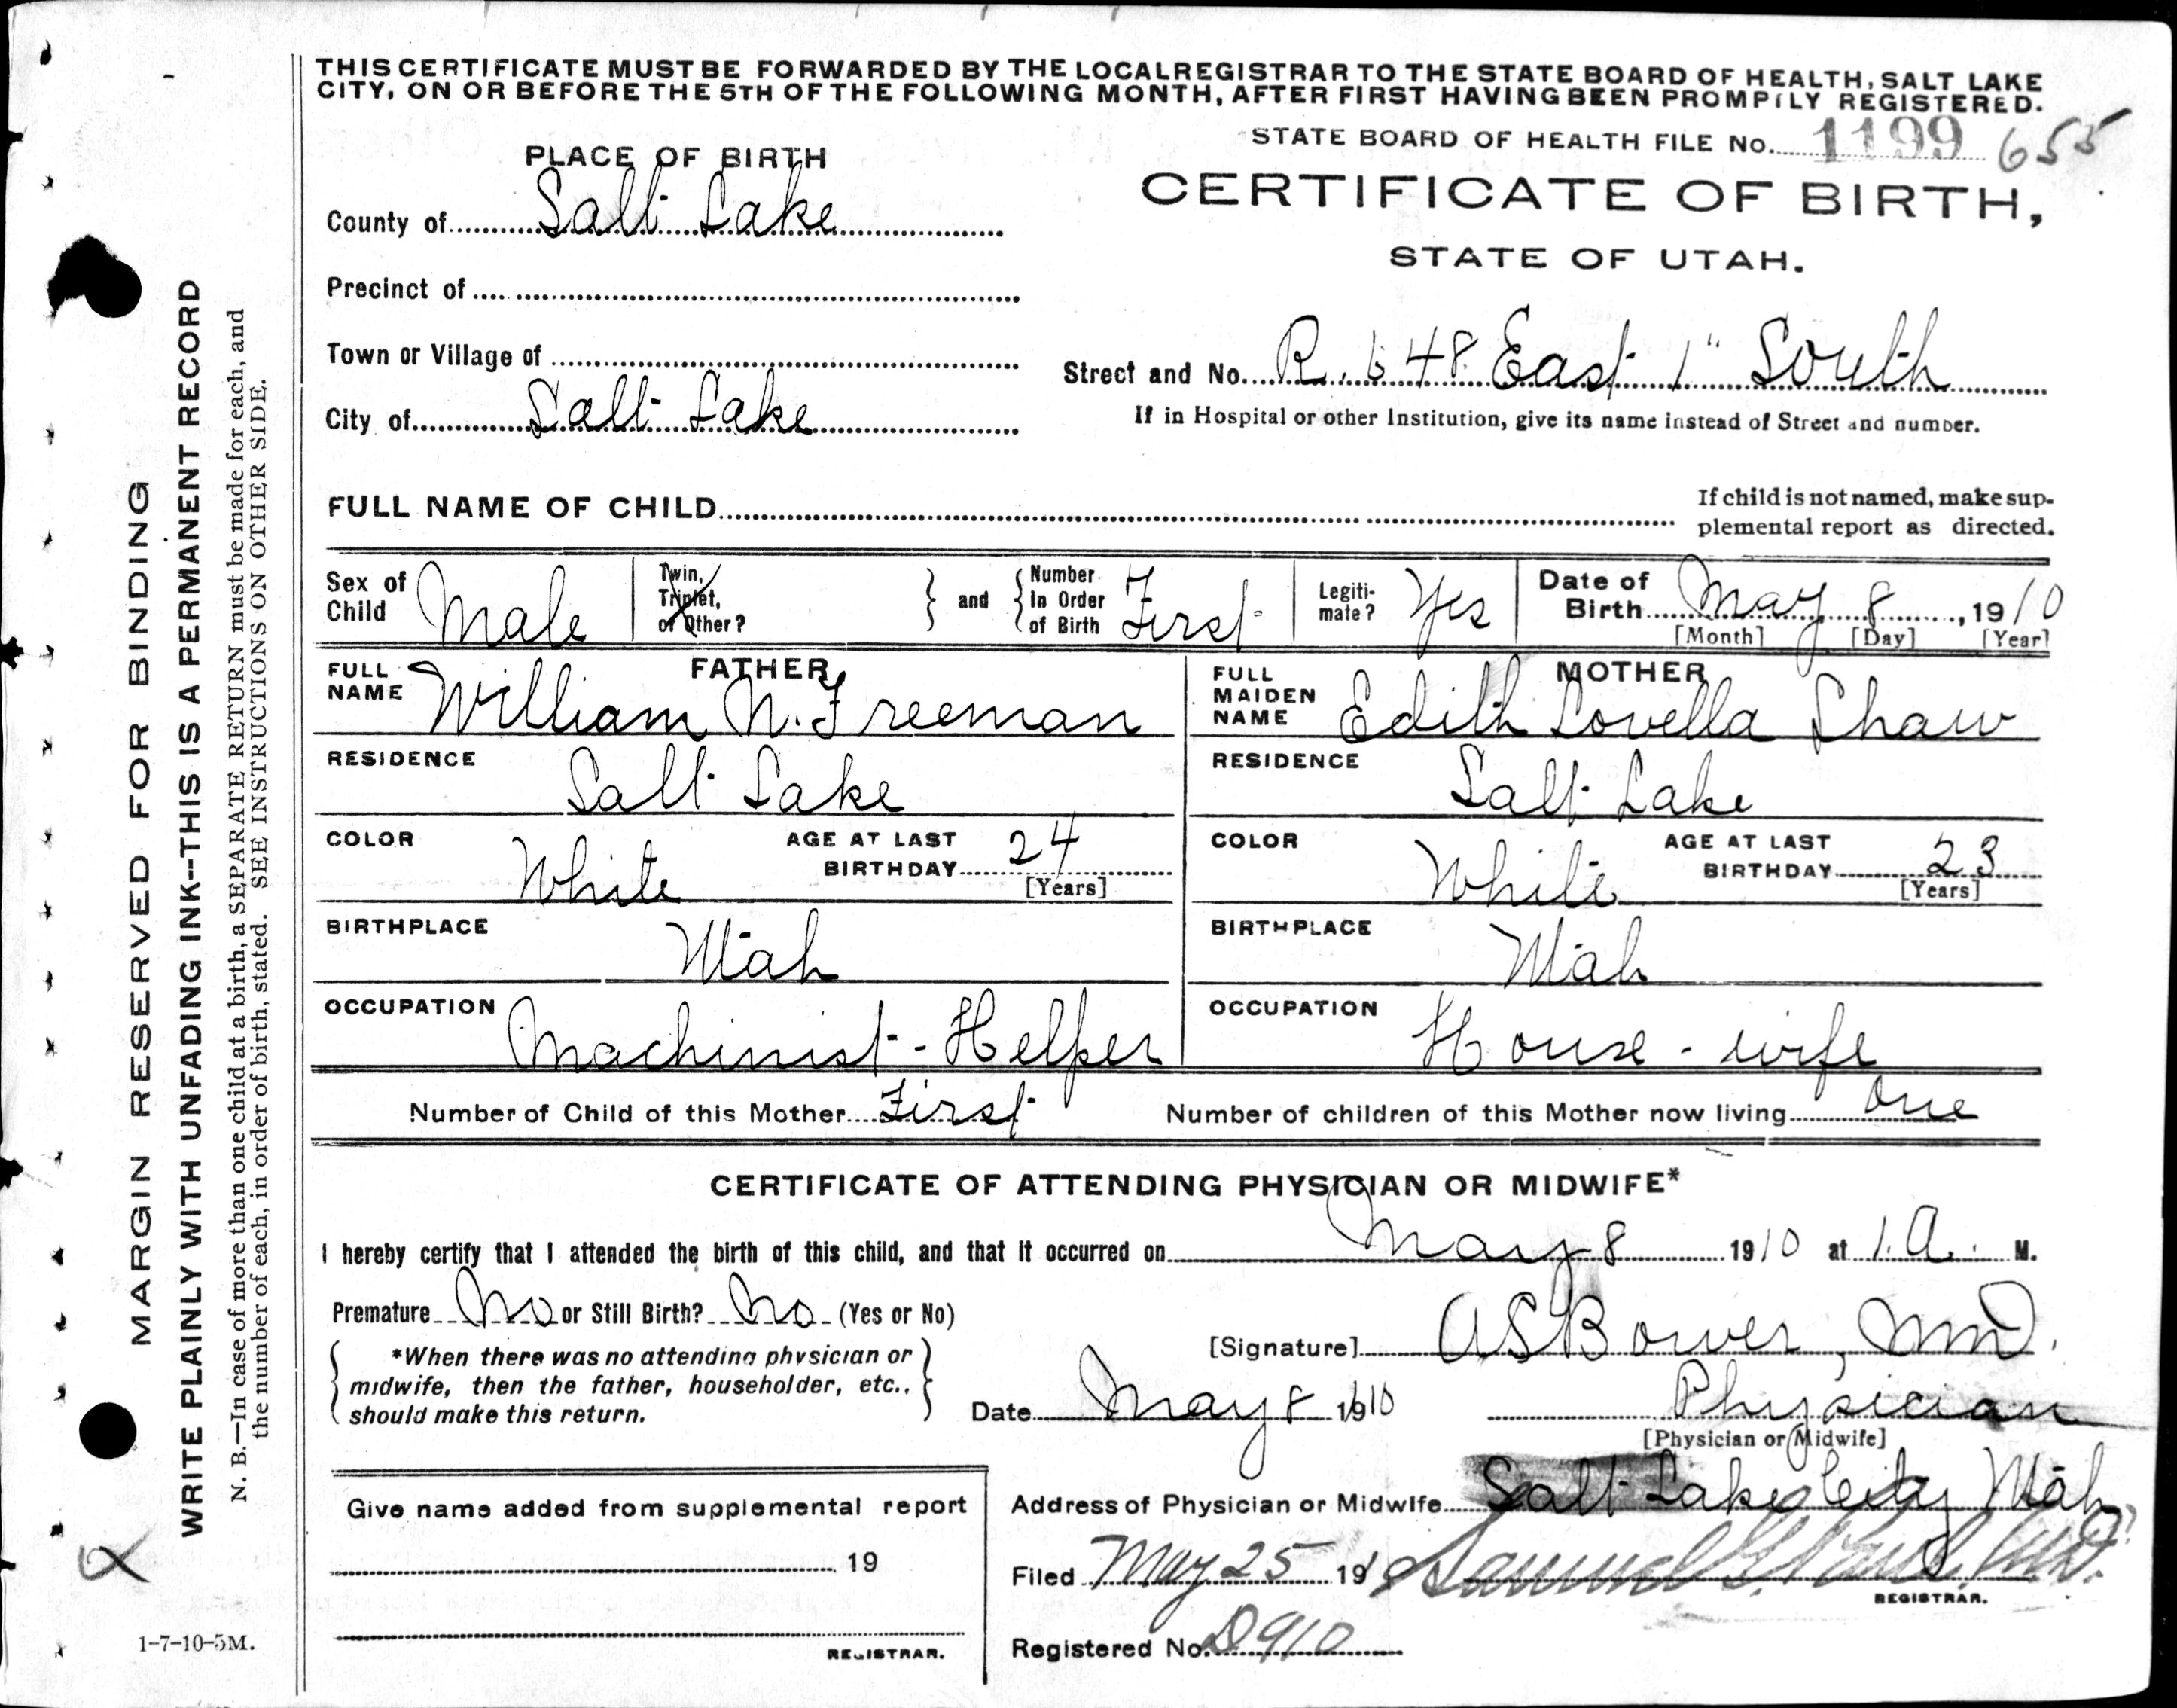 THIS CERTIFICATE MUST BE FORWARDED BY THE LOCAL REGISTRAR TO THE STATE BOARD OF HEALTH, SALT LAKE
CITY, ON OR BEFORE THE 5TH OF THE FOLLOWING MONTH, AFTER FIRST HAVING BEEN PROMPTLY REGISTERED.
STATE BOARD OF HEALTH FILE No. 1199 655
PLACE OF BIRTH
CERTIFICATE OF BIRTH,
STATE OF UTAH.
County of Salt Lake
Precinct of
Town or Village of
Street and No. R. 648 East 1" South
City of Salt Lake
If in Hospital or other Institution, give its name instead of Street and number.
FULL NAME OF CHILD
If child is not named, make sup-
plemental report as directed.
Sex of Child Male
Twin, Triplet, or Other?
and
Number In Order of Birth First
Legiti-mate? Yes
Date of Birth May 8, 1910
[Month] [Day] [Year]
FATHER
FULL NAME William N. Freeman
MOTHER
FULL MAIDEN NAME Edith Lovella Shaw
RESIDENCE Salt Lake
RESIDENCE Salt Lake
COLOR White AGE AT LAST BIRTHDAY 24 [Years]
COLOR White AGE AT LAST BIRTHDAY 23 [Years]
BIRTHPLACE Utah
BIRTHPLACE Utah
OCCUPATION Machinist-Helper
OCCUPATION House-wife
Number of Child of this Mother First
Number of children of this Mother now living One
CERTIFICATE OF ATTENDING PHYSICIAN OR MIDWIFE*
I hereby certify that I attended the birth of this child, and that it occurred on May 8 1910 at 1. A. M.
Premature No or Still Birth? No (Yes or No)
*When there was no attending physician or
midwife, then the father, householder, etc.,
should make this return.
[Signature] A S Bower, MD.
Date May 8 1910
Physician
[Physician or Midwife]
Address of Physician or Midwife Salt Lake City Utah
Give name added from supplemental report
19
REGISTRAR.
Filed May 25 1910 Samuel G. Paul, MD.
REGISTRAR.
Registered No. D910
1-7-10-5M.
MARGIN RESERVED FOR BINDING
WRITE PLAINLY WITH UNFADING INK--THIS IS A PERMANENT RECORD
N. B.—In case of more than one child at a birth, a SEPARATE RETURN must be made for each, and
the number of each, in order of birth, stated. SEE INSTRUCTIONS ON OTHER SIDE.